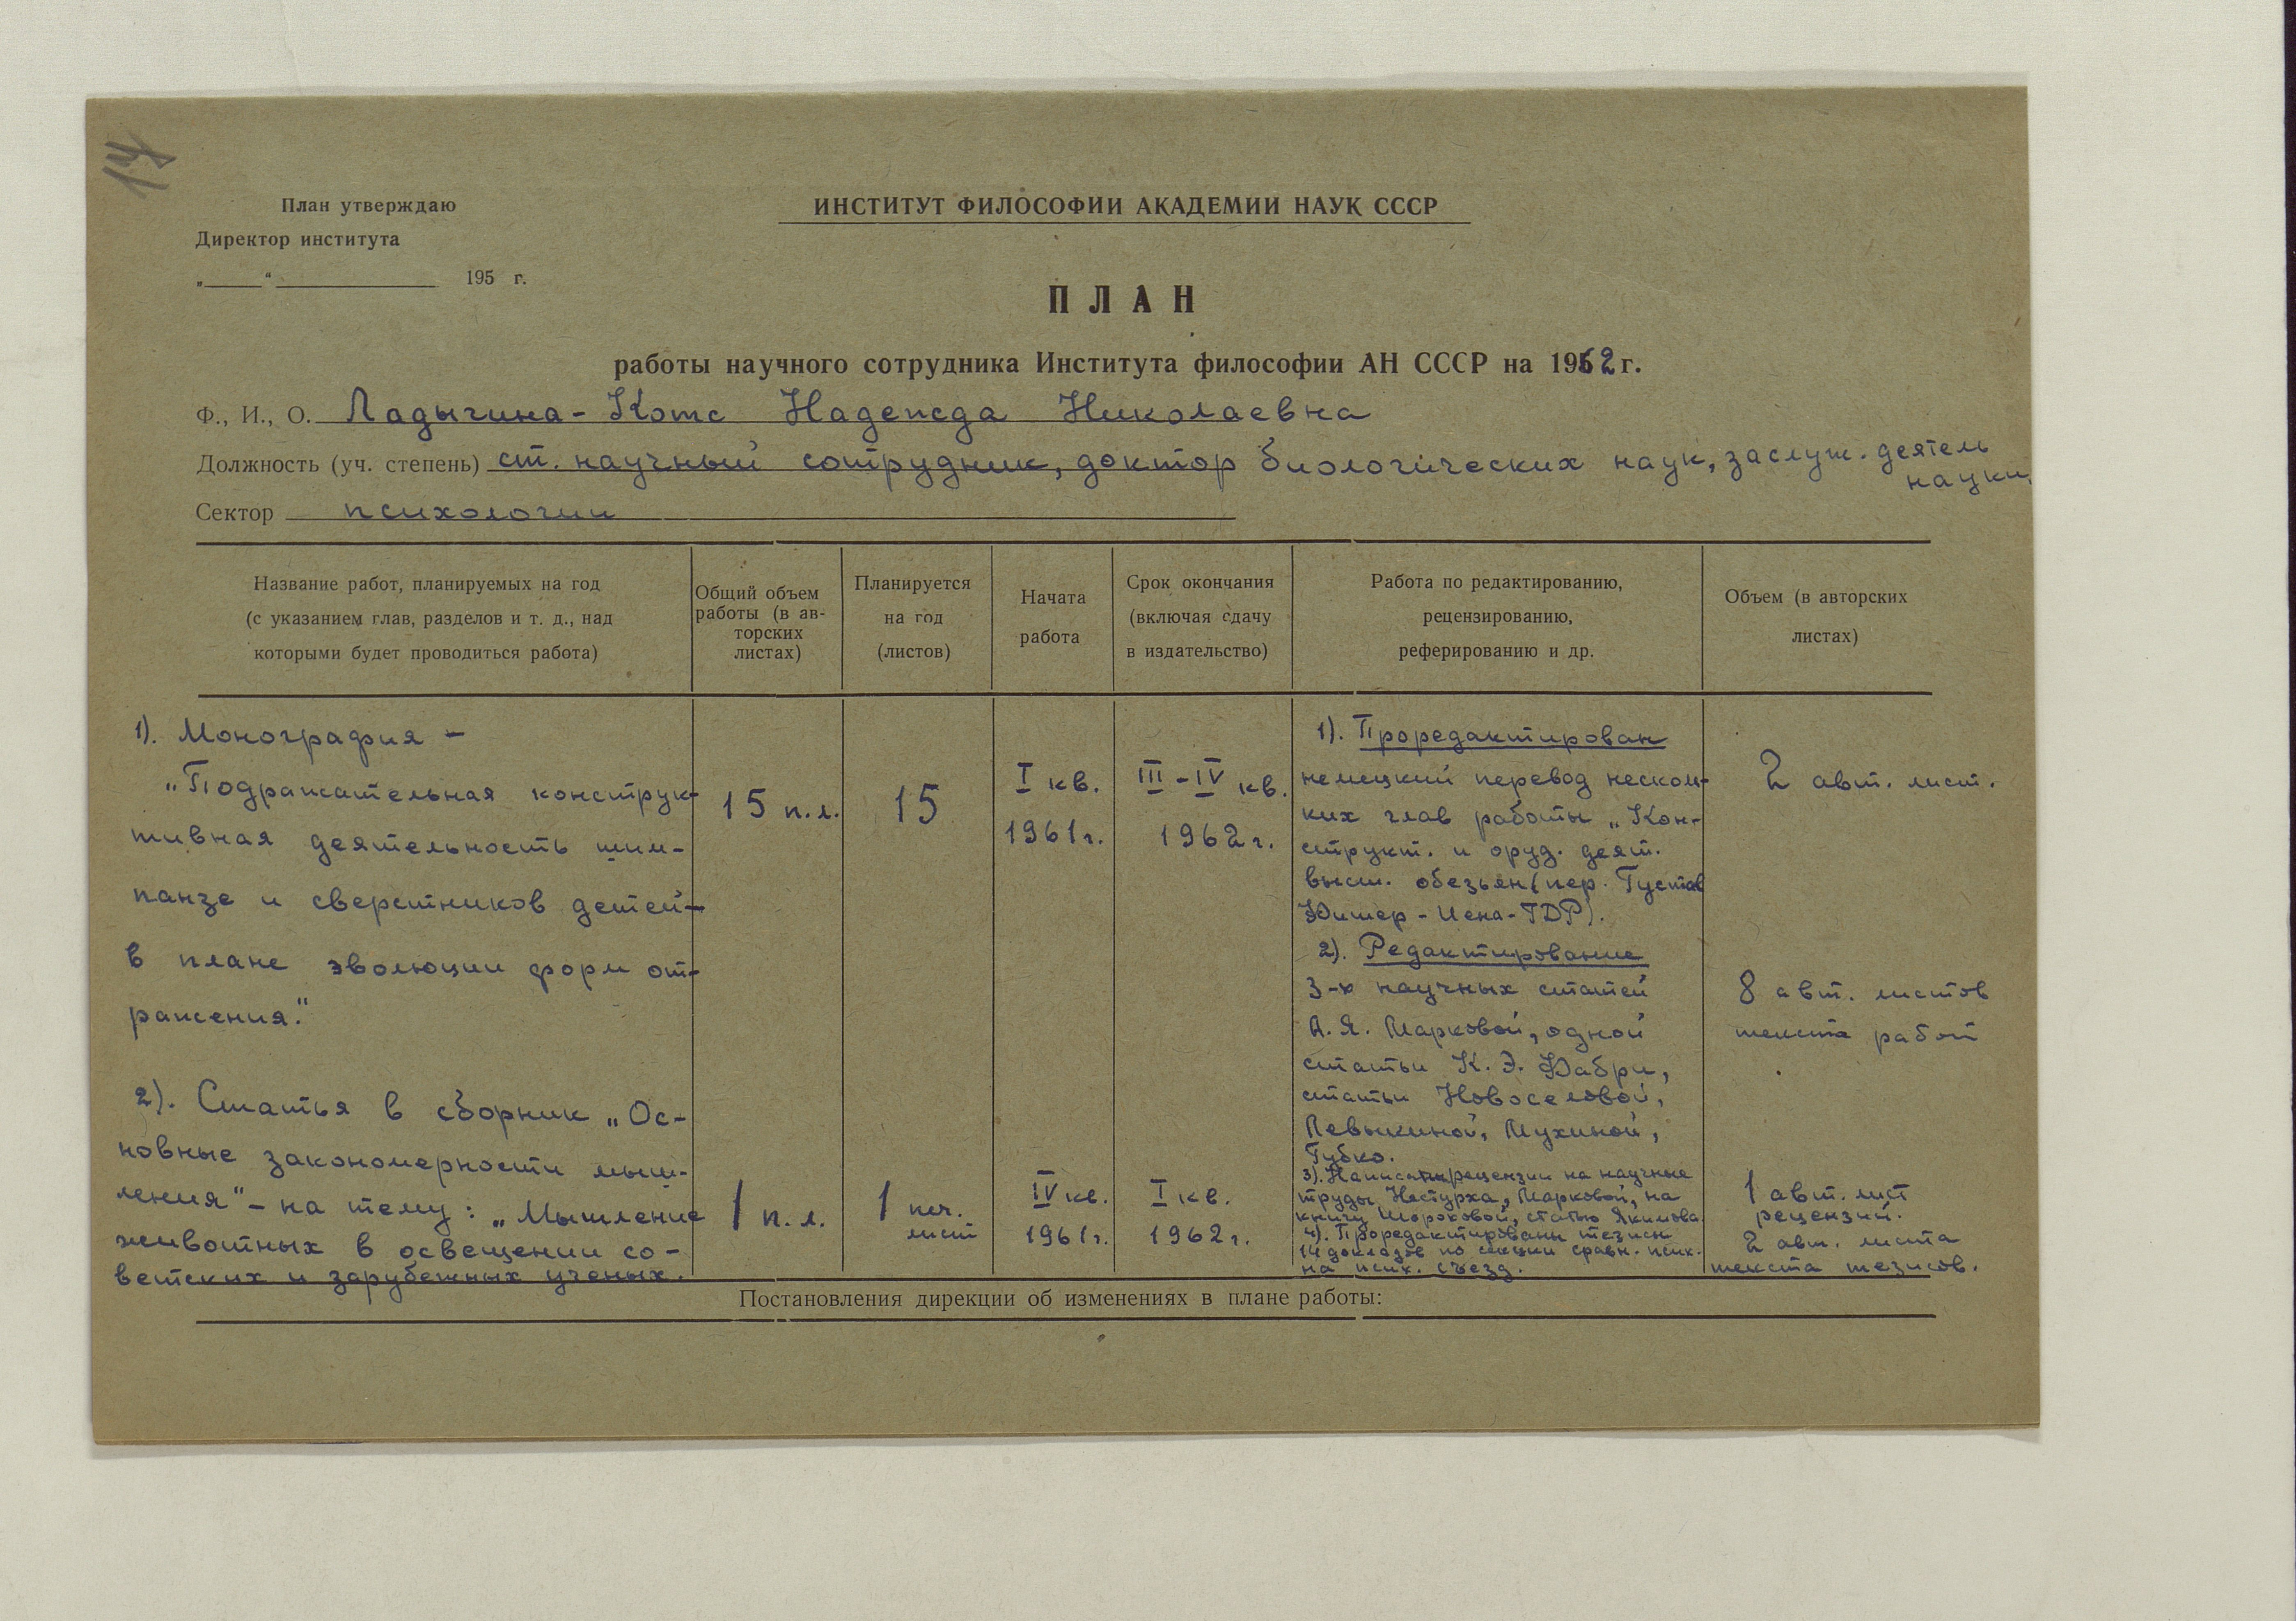 14
План утверждаю
Директор института
„ “ 195 г.
ИНСТИТУТ ФИЛОСОФИИ АКАДЕМИИ НАУК СССР
ПЛАН
работы научного сотрудника Института философии АН СССР на 1962 г.
Ф., И., О. Ладыгина-Котс Надежда Николаевна
Должность (уч. степень) ст. научный сотрудник, доктор биологических наук, заслуж. деятель
науки.
Сектор психологии
Название работ, планируемых на год
(с указанием глав, разделов и т. д., над
которыми будет проводиться работа)
Общий объем
работы (в ав-
торских
листах)
Планируется
на год
(листов)
Начата
работа
Срок окончания
(включая сдачу
в издательство)
Работа по редактированию,
рецензированию,
реферированию и др.
Объем (в авторских
листах)
1). Монография -
„Подражательная конструк-
тивная деятельность шим-
панзе и сверстников детей-
в плане эволюции форм от-
ражения."
15 п.л.
15
I кв.
1961 г.
III - IV кв.
1962 г.
2). Статья в сборник „Ос-
новные закономерности мыш-
ления" - на тему: „Мышление
животных в освещении со-
ветских и зарубежных ученых.
1 п. л.
1 печ.
лист
IV кв.
1961 г.
I кв.
1962 г.
1). Проредактирован
немецкий перевод несколь-
ких глав работы „Кон-
структ. и оруд. деят.
высш. обезьян (пер. Густав
Фишер - Иена - ГДР).
2 авт. лист.
2). Редактирование
3-х научных статей
А. Я. Марковой, одной
статьи К. Э. Фабри,
статьи Новоселовой,
Левыкиной, Мухиной,
Губко.
8 авт. листов
текста работ
3). Написаны рецензии на научные
труды Нестурха, Марковой, на
книгу Шороховой, статью Якимова
1 авт. лист
рецензий.
4). Проредактированы тезисы
14 докладов по секции сравн. псих.
на псих. съезд.
2 авт. листа
текста тезисов.
Постановления дирекции об изменениях в плане работы: